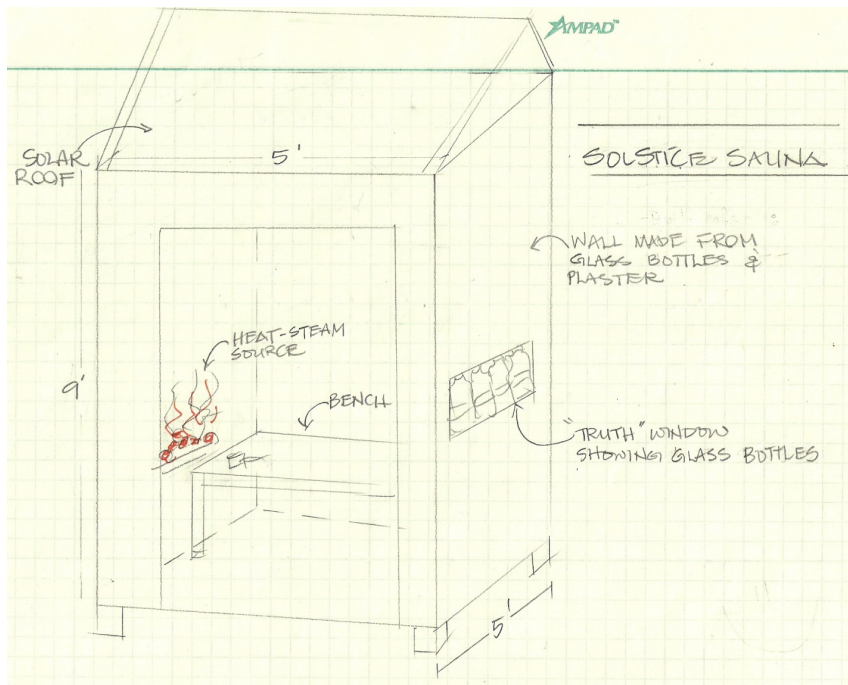 AMPAD™
SOLSTICE SAUNA
SOLAR
ROOF
5'
WALL MADE FROM
GLASS BOTTLES &
PLASTER
HEAT-STEAM
SOURCE
9'
BENCH
"TRUTH" WINDOW
SHOWING GLASS BOTTLES
5'